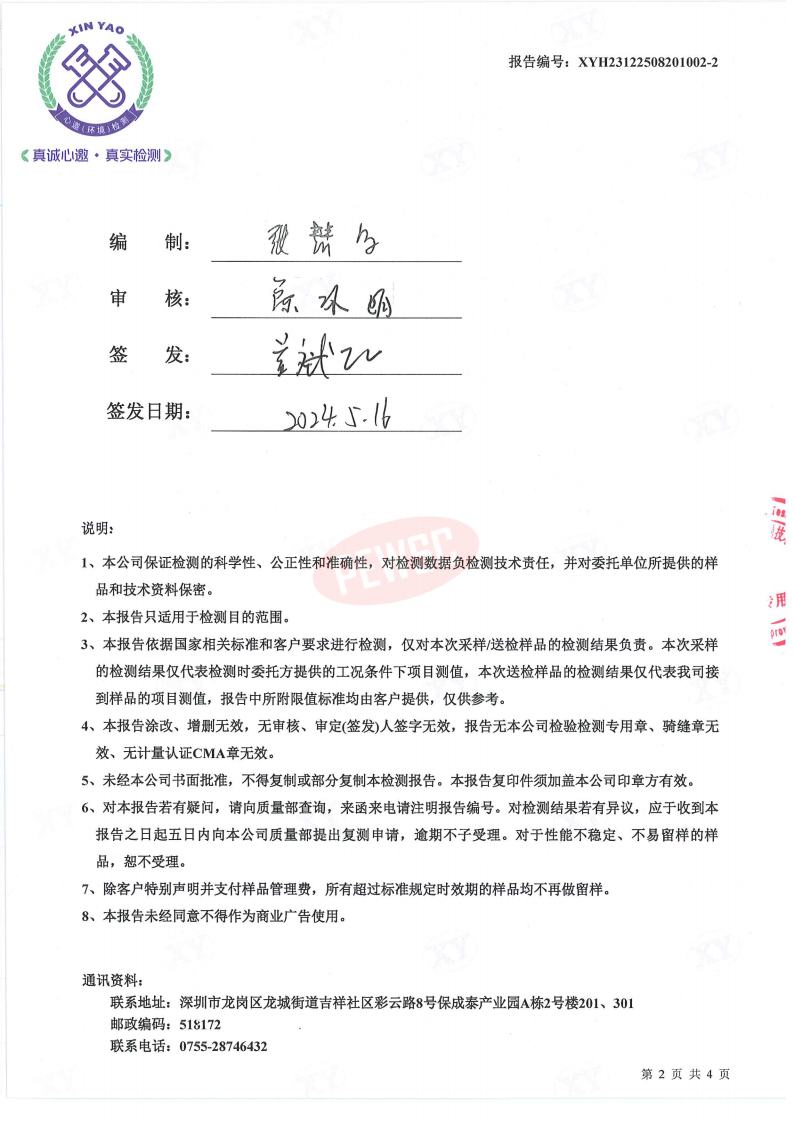 XIN YAO
心邀(环境)检测
《真诚心邀·真实检测》
报告编号：XYH23122508201002-2
编 制：
审 核： 陈冰明
签 发：
签发日期： 2024.5.16
说明：
1、本公司保证检测的科学性、公正性和准确性，对检测数据负检测技术责任，并对委托单位所提供的样
品和技术资料保密。
PEWSC
2、本报告只适用于检测目的范围。
3、本报告依据国家相关标准和客户要求进行检测，仅对本次采样/送检样品的检测结果负责。本次采样
的检测结果仅代表检测时委托方提供的工况条件下项目测值，本次送检样品的检测结果仅代表我司接
到样品的项目测值，报告中所附限值标准均由客户提供，仅供参考。
4、本报告涂改、增删无效，无审核、审定(签发)人签字无效，报告无本公司检验检测专用章、骑缝章无
效、无计量认证CMA章无效。
5、未经本公司书面批准，不得复制或部分复制本检测报告。本报告复印件须加盖本公司印章方有效。
6、对本报告若有疑问，请向质量部查询，来函来电请注明报告编号。对检测结果若有异议，应于收到本
报告之日起五日内向本公司质量部提出复测申请，逾期不子受理。对于性能不稳定、不易留样的样
品，恕不受理。
7、除客户特别声明并支付样品管理费，所有超过标准规定时效期的样品均不再做留样。
8、本报告未经同意不得作为商业广告使用。
通讯资料：
联系地址：深圳市龙岗区龙城街道吉祥社区彩云路8号保成泰产业园A栋2号楼201、301
邮政编码：518172
联系电话：0755-28746432
第 2 页 共 4 页